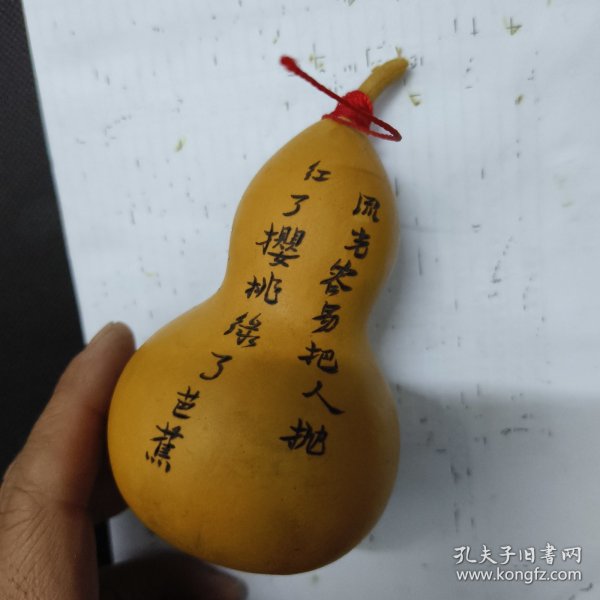 流光容易把人抛
红了攖桃綠了芭蕉
孔夫子旧书网
www.kongfz.com